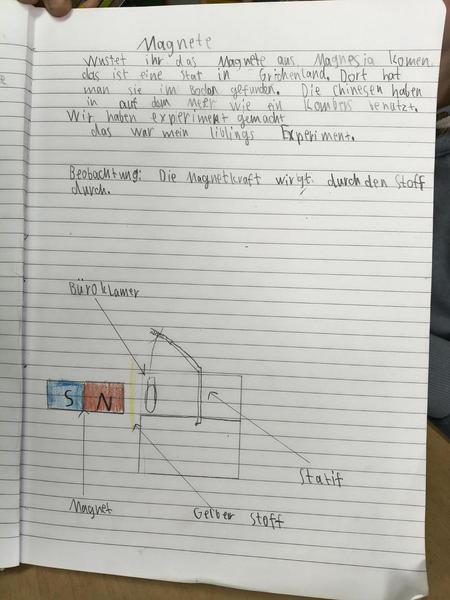 Magnete
Wustet ihr das Magnete aus Magnesia komen
das ist eine Stat in Grichenland. Dort hat
man sie im Boden gefunden. Die Chinesen haben
in auf dem Meer wie ein Kombos benutzt.
Wir haben experiment gemacht
das war mein liblings Experiment.
Beobachtung: Die Magnetkraft wirgt durch den Stoff
durch.
Büroklamer
S N
Statif
Magnet
Gelber Stoff